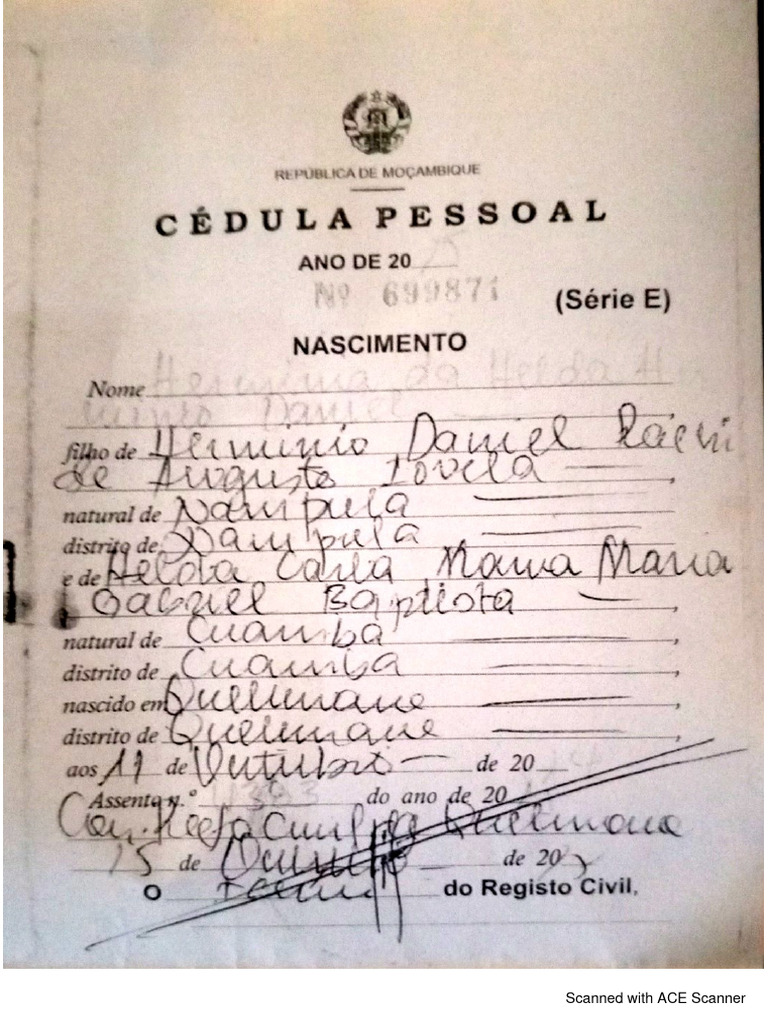 REPÚBLICA DE MOÇAMBIQUE
CÉDULA PESSOAL
ANO DE 20
Nº 699871 (Série E)
NASCIMENTO
Nome Hermínia da Helda Her
minio Daniel
filho de Herminio Daniel
de Augusto
natural de Nampula,
distrito de Nampula,
e de Helda Carla Maria
Gabriel Baptista,
natural de Cuamba,
distrito de Cuamba,
nascido em Quelimane,
distrito de Quelimane,
aos 11 de Outubro de 20
Assento n.º 4393 do ano de 20
Quelimane
15 de de 20
O do Registo Civil,
Scanned with ACE Scanner